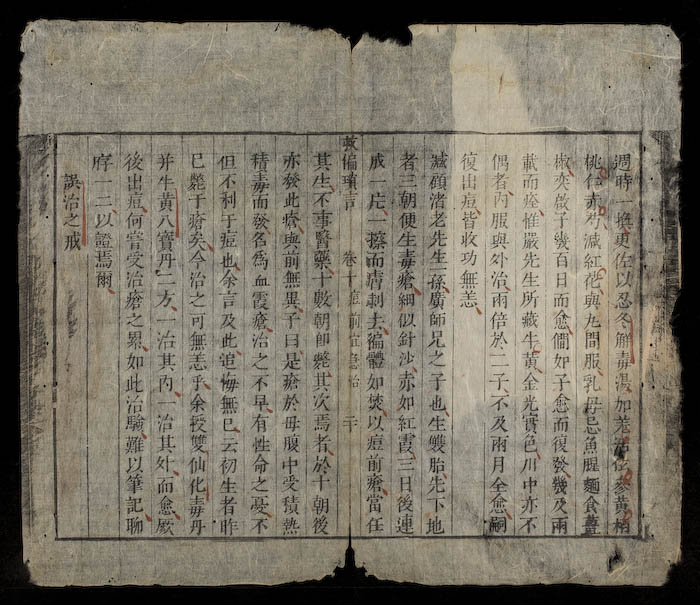 週時一換更佐以忍冬解毒湯加羗活玄參黃柏
桃仁赤芍減紅花與九間服乳母忌魚腥麵食薑
椒奕啟子幾百日而愈僴如子愈而復發幾及兩
載而痊惟嚴先生所藏牛黃金光實色川中亦不
偶者內服與外治兩倍於二子不及兩月全愈嗣
復出痘皆收功無恙
滅碩渚老先生孫廣師兄之子也生雙胎先下地
者三朝便生毒瘡細似針沙赤如紅霞三日後連
成一片一擦而膚剌去徧體如焚以痘前瘡當任
其生不事醫藥十數朝卽斃其次焉者於十朝後
亦發此瘡與前無異予曰是瘡於母腹中受積熱
積毒而發名為血霞瘡治之不早有性命之憂不
但不利于痘也余言及此追悔無已云初生者昨
已斃于瘡矣今治之可無恙乎余授雙仙化毒丹
并牛黃八寶丹二方一治其內一治其外而愈厥
後出痘何嘗受治瘡之累如此治驗難以筆記聊
序一二以證焉爾
誤治之戒
救偏瑣言 卷十 痘前宜急治 二十